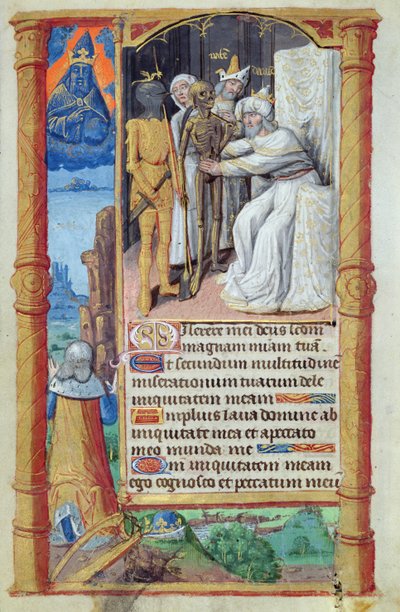 Miserere mei deus scdm
magnam miam tuā.
Et secundum multitudinē
miserationum tuarum dele
iniquitatem meam
Amplius laua domine ab
iniquitate mea et apeccato
meo munda me
Qm iniquitatem meam
ego cognosco et peccatum meū